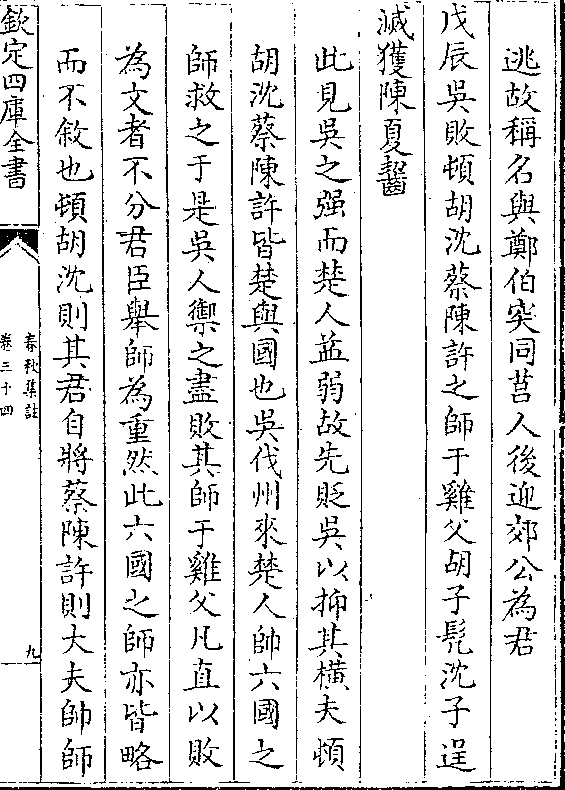 逃故稱名與鄭伯突同莒人後迎郊公為君
戊辰吳敗頓胡沈蔡陳許之師于雞父胡子髠沈子逞
滅獲陳夏齧
此見吳之强而楚人益弱故先貶吳以抑其橫夫頓
胡沈蔡陳許皆楚與國也吳伐州來楚人帥六國之
師救之于是吳人禦之盡敗其師于雞父凡直以敗
為文者不分君臣舉師為重然此六國之師亦皆略
而不敘也頓胡沈則其君自將蔡陳許則大夫帥師
欽定四庫全書
春秋集註
卷三十四
九